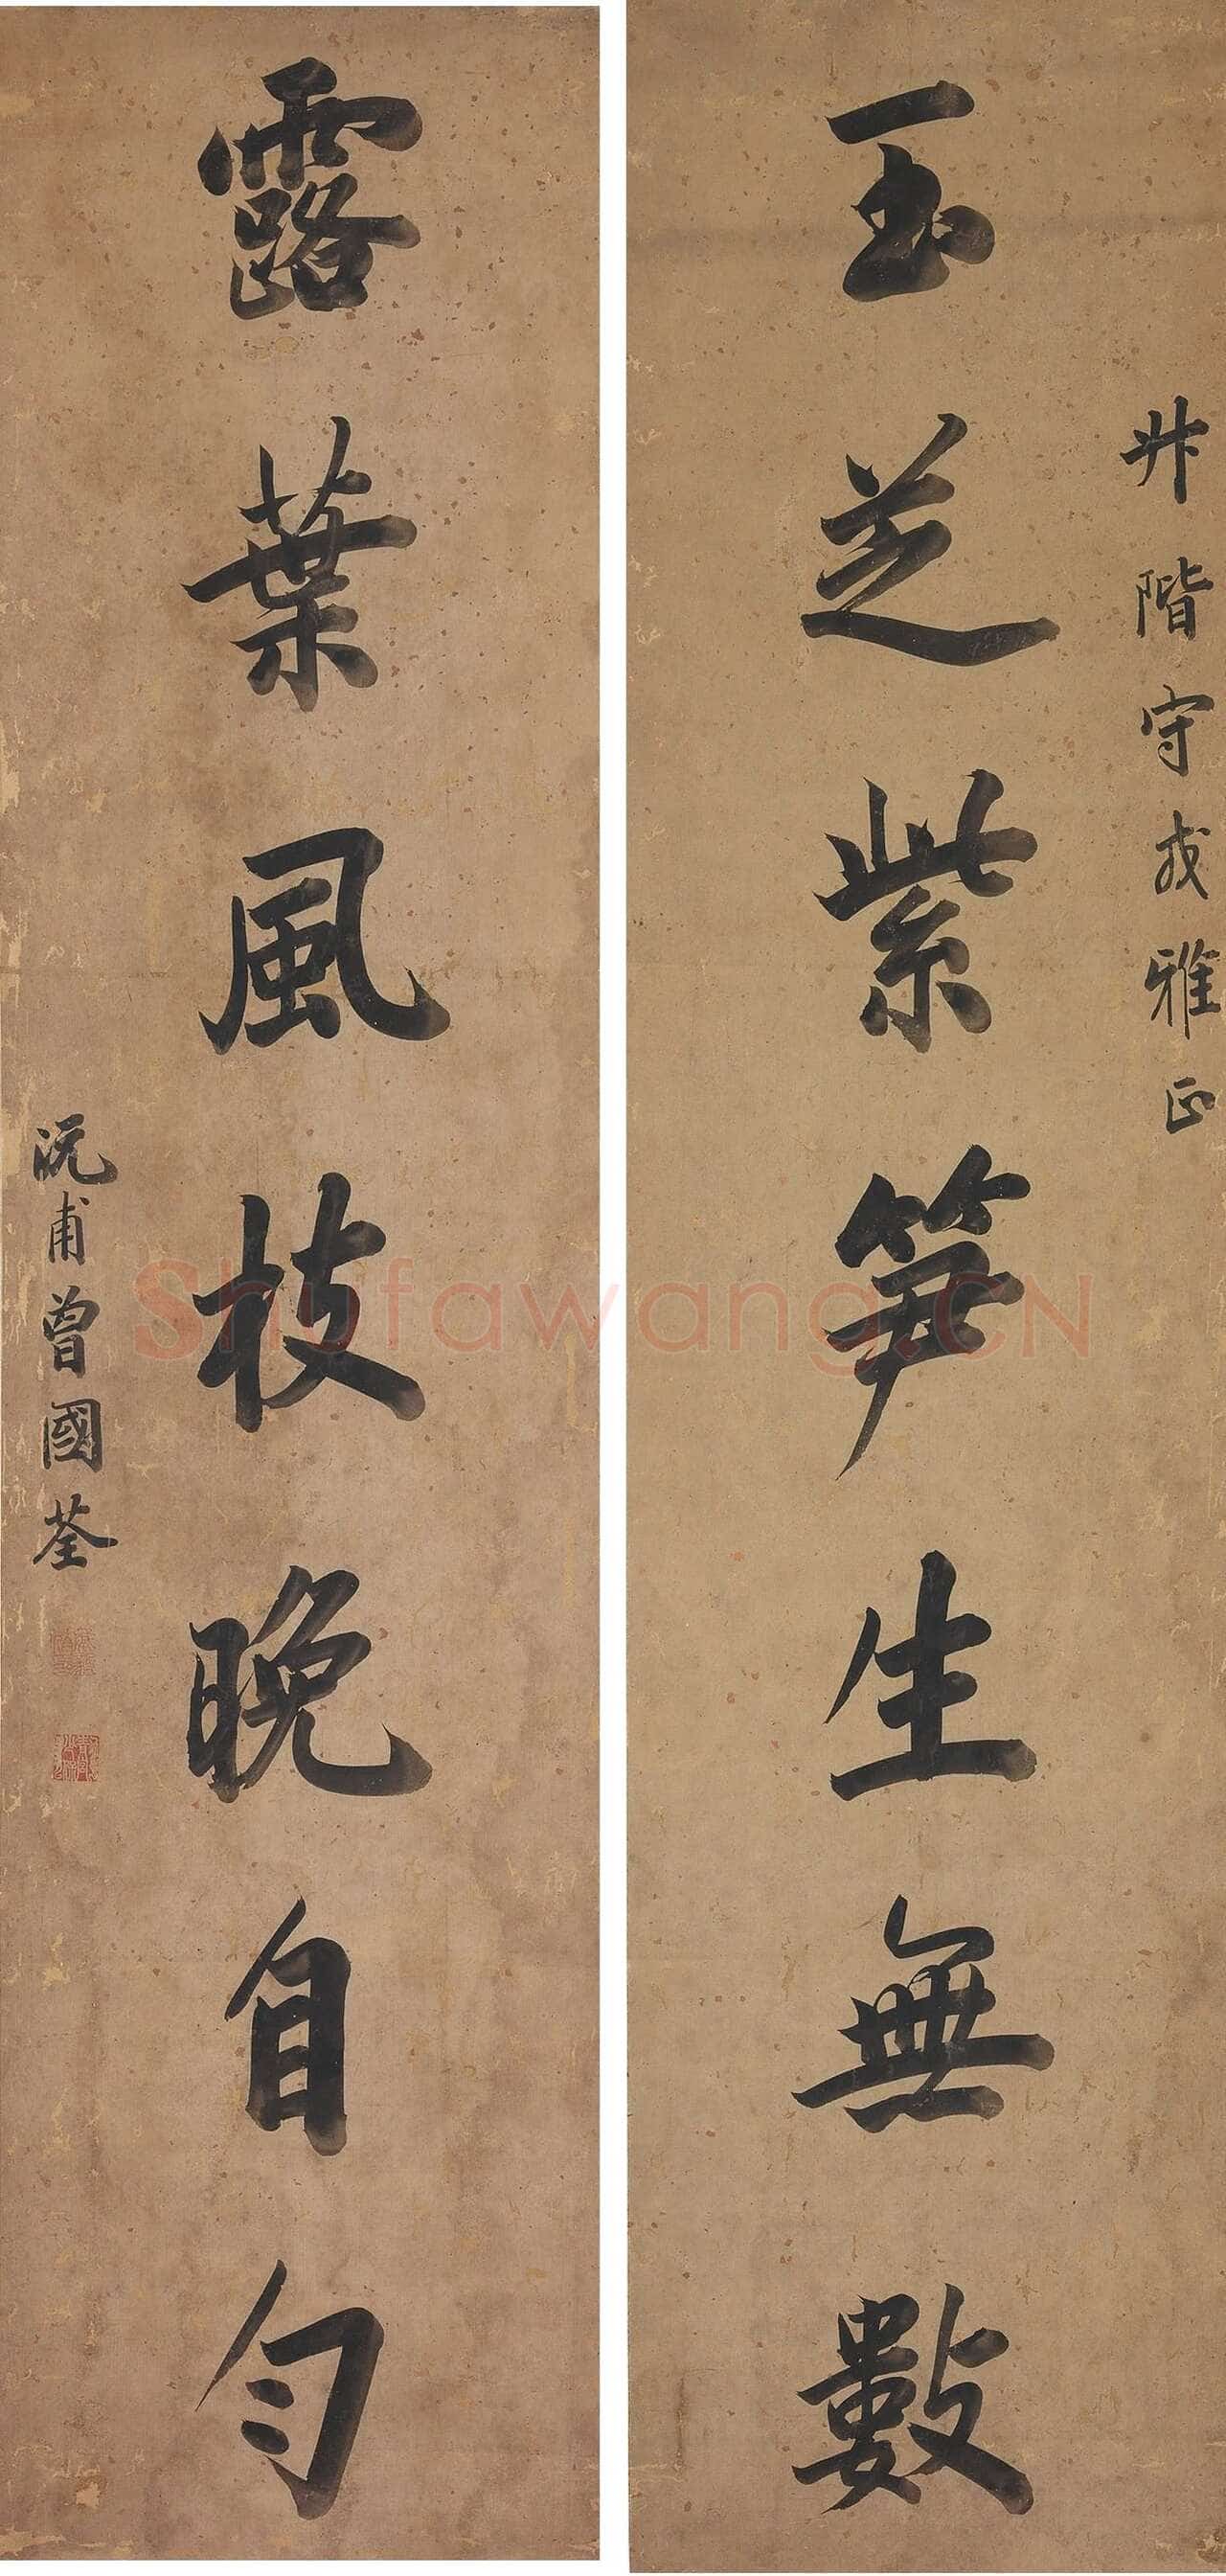 玉芝紫笋生無數
升階守戎雅正
露葉風枝晚自勻
沅甫曾國荃
Shufawang.CN